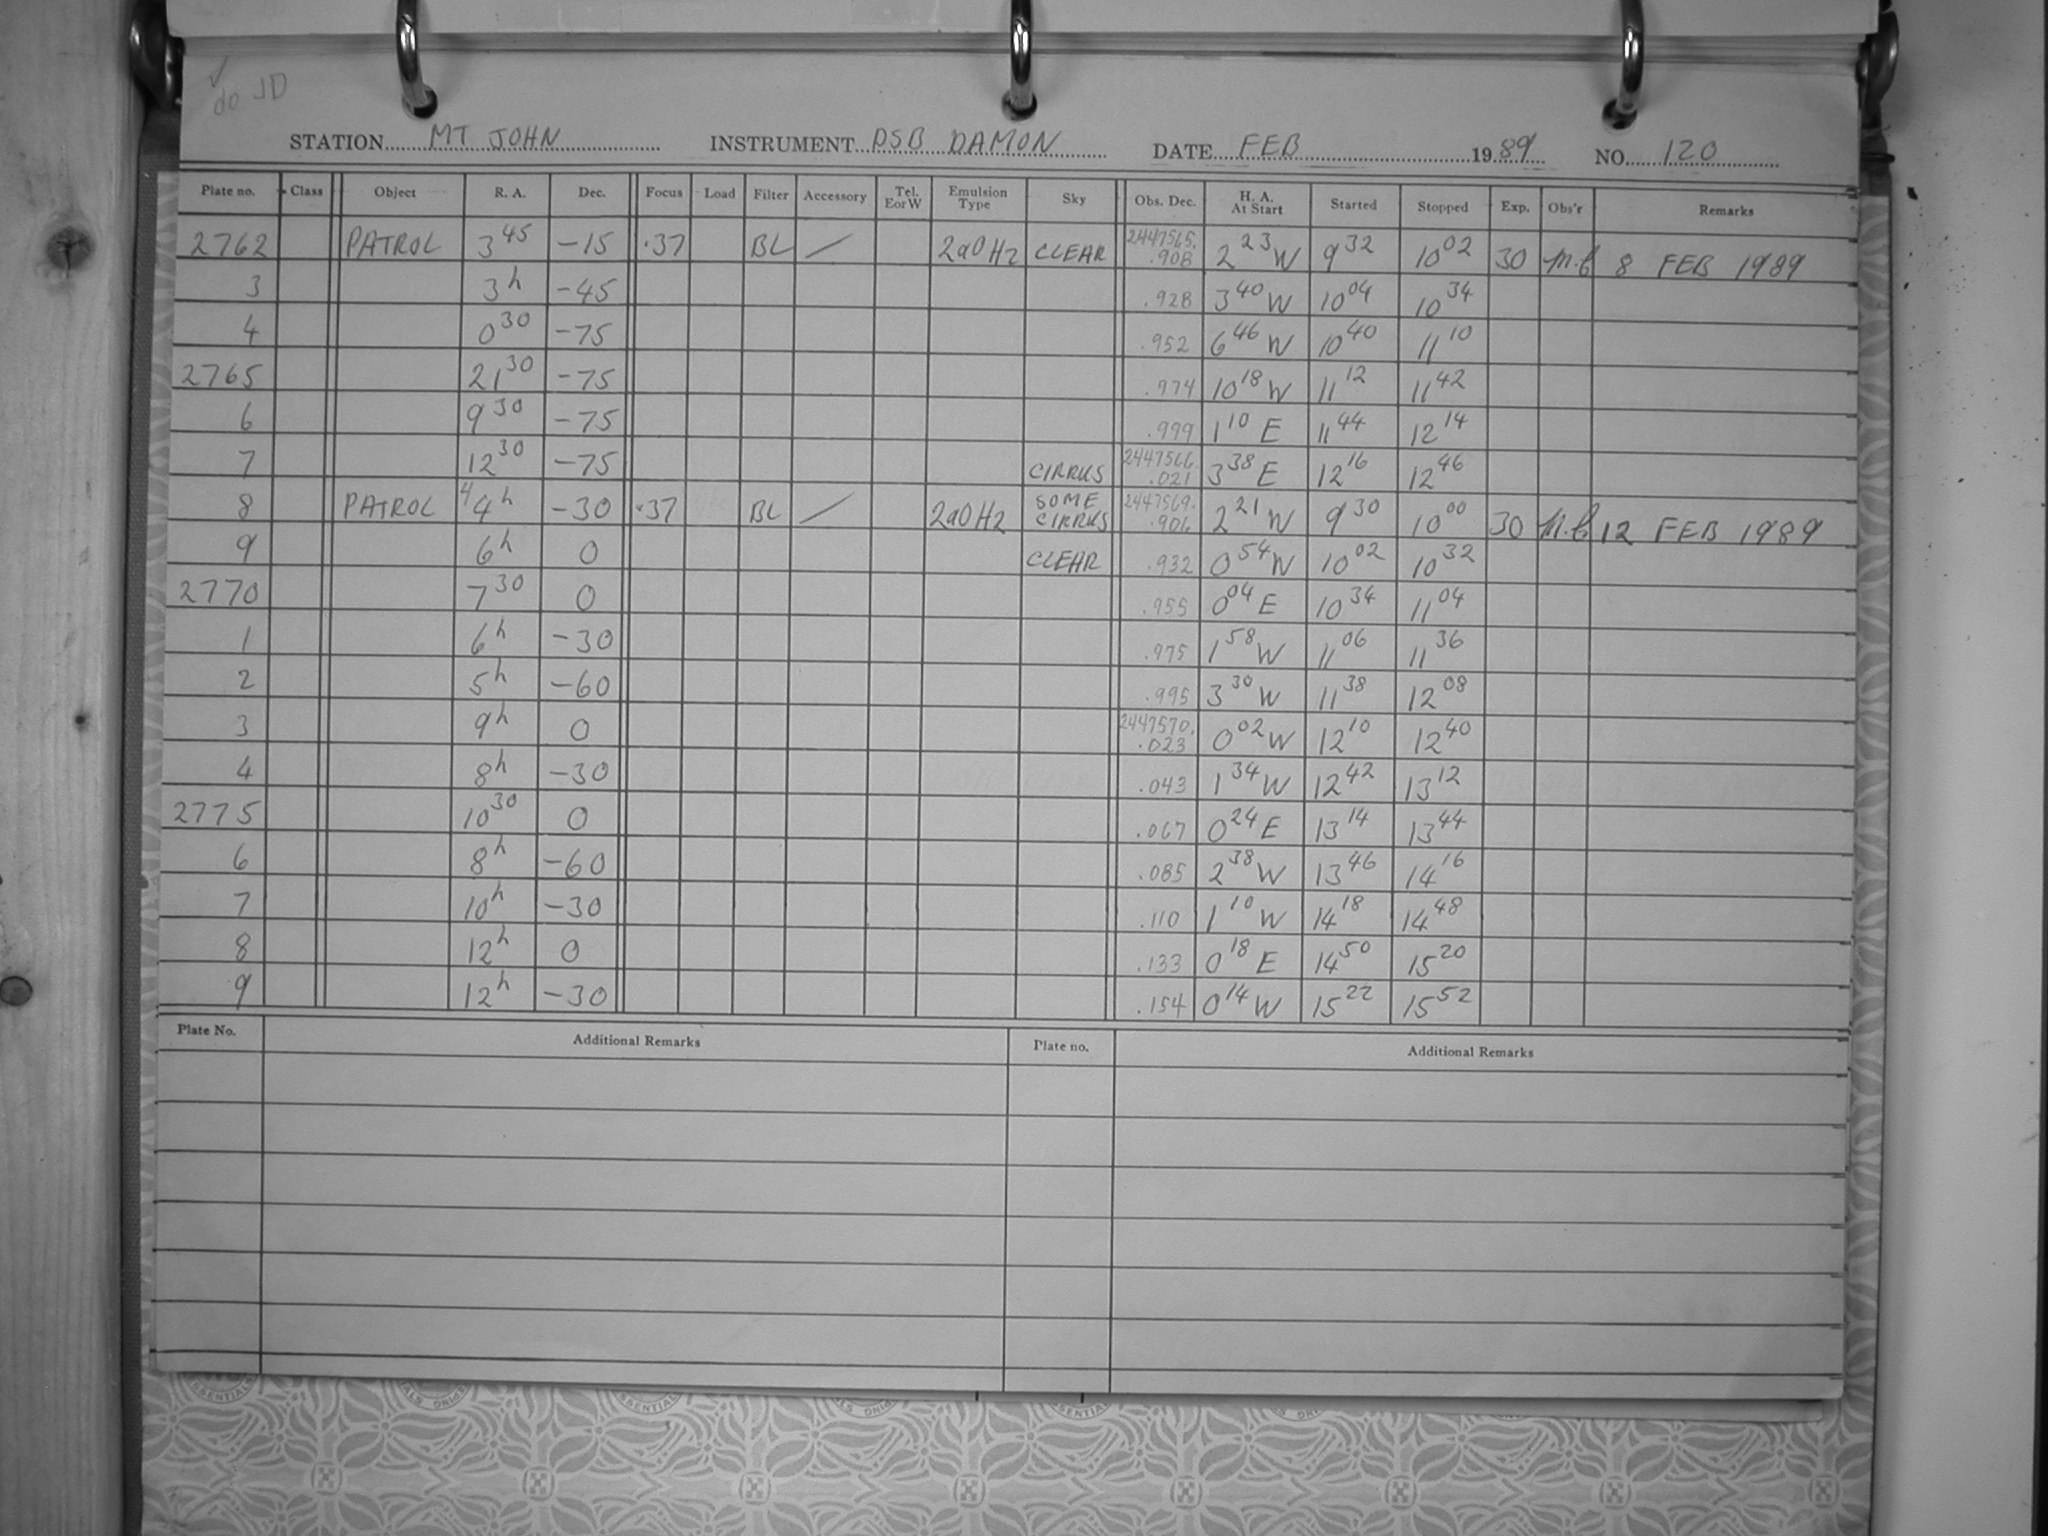 ✓
do JD
STATION MT JOHN INSTRUMENT DSB DAMON DATE FEB 1989 NO. 120
Plate no. Class Object R. A. Dec. Focus Load Filter Accessory Tel. EorW Emulsion Type Sky Obs. Dec. H. A. At Start Started Stopped Exp. Obs'r Remarks
2762 PATROL 3 45 -15 .37 BL / 2aO H2 CLEAR 2447565. .908 2 23 W 9 32 10 02 30 M.C 8 FEB 1989
3 3h -45 .928 3 40 W 10 04 10 34
4 0 30 -75 .952 6 46 W 10 40 11 10
2765 21 30 -75 .974 10 18 W 11 12 11 42
6 9 30 -75 .999 1 10 E 11 44 12 14
7 12 30 -75 CIRRUS 2447566. .021 3 38 E 12 16 12 46
8 PATROL 4h -30 .37 BL / 2aO H2 SOME CIRRUS 2447569. .906 2 21 W 9 30 10 00 30 M.C 12 FEB 1989
9 6h 0 CLEAR .932 0 54 W 10 02 10 32
2770 7 30 0 .955 0 04 E 10 34 11 04
1 6h -30 .975 1 58 W 11 06 11 36
2 5h -60 .995 3 30 W 11 38 12 08
3 9h 0 2447570. .023 0 02 W 12 10 12 40
4 8h -30 .043 1 34 W 12 42 13 12
2775 10 30 0 .067 0 24 E 13 14 13 44
6 8h -60 .085 2 38 W 13 46 14 16
7 10h -30 .110 1 10 W 14 18 14 48
8 12h 0 .133 0 18 E 14 50 15 20
9 12h -30 .154 0 14 W 15 22 15 52
Plate No. Additional Remarks Plate no. Additional Remarks